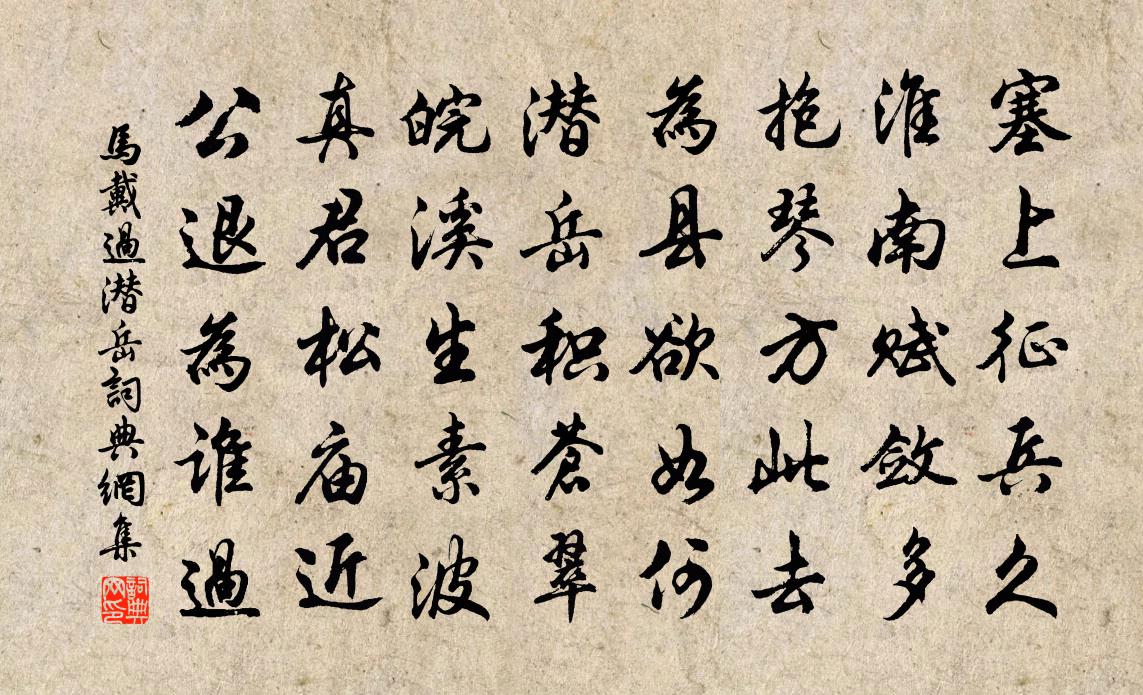 塞上征兵久
淮南赋敛多
抱琴方此去
為县欲如何
潜岳积苍翠
皖溪生素波
真君松庙近
公退為谁過
馬戴過潜岳詞典網集
詞典
网印